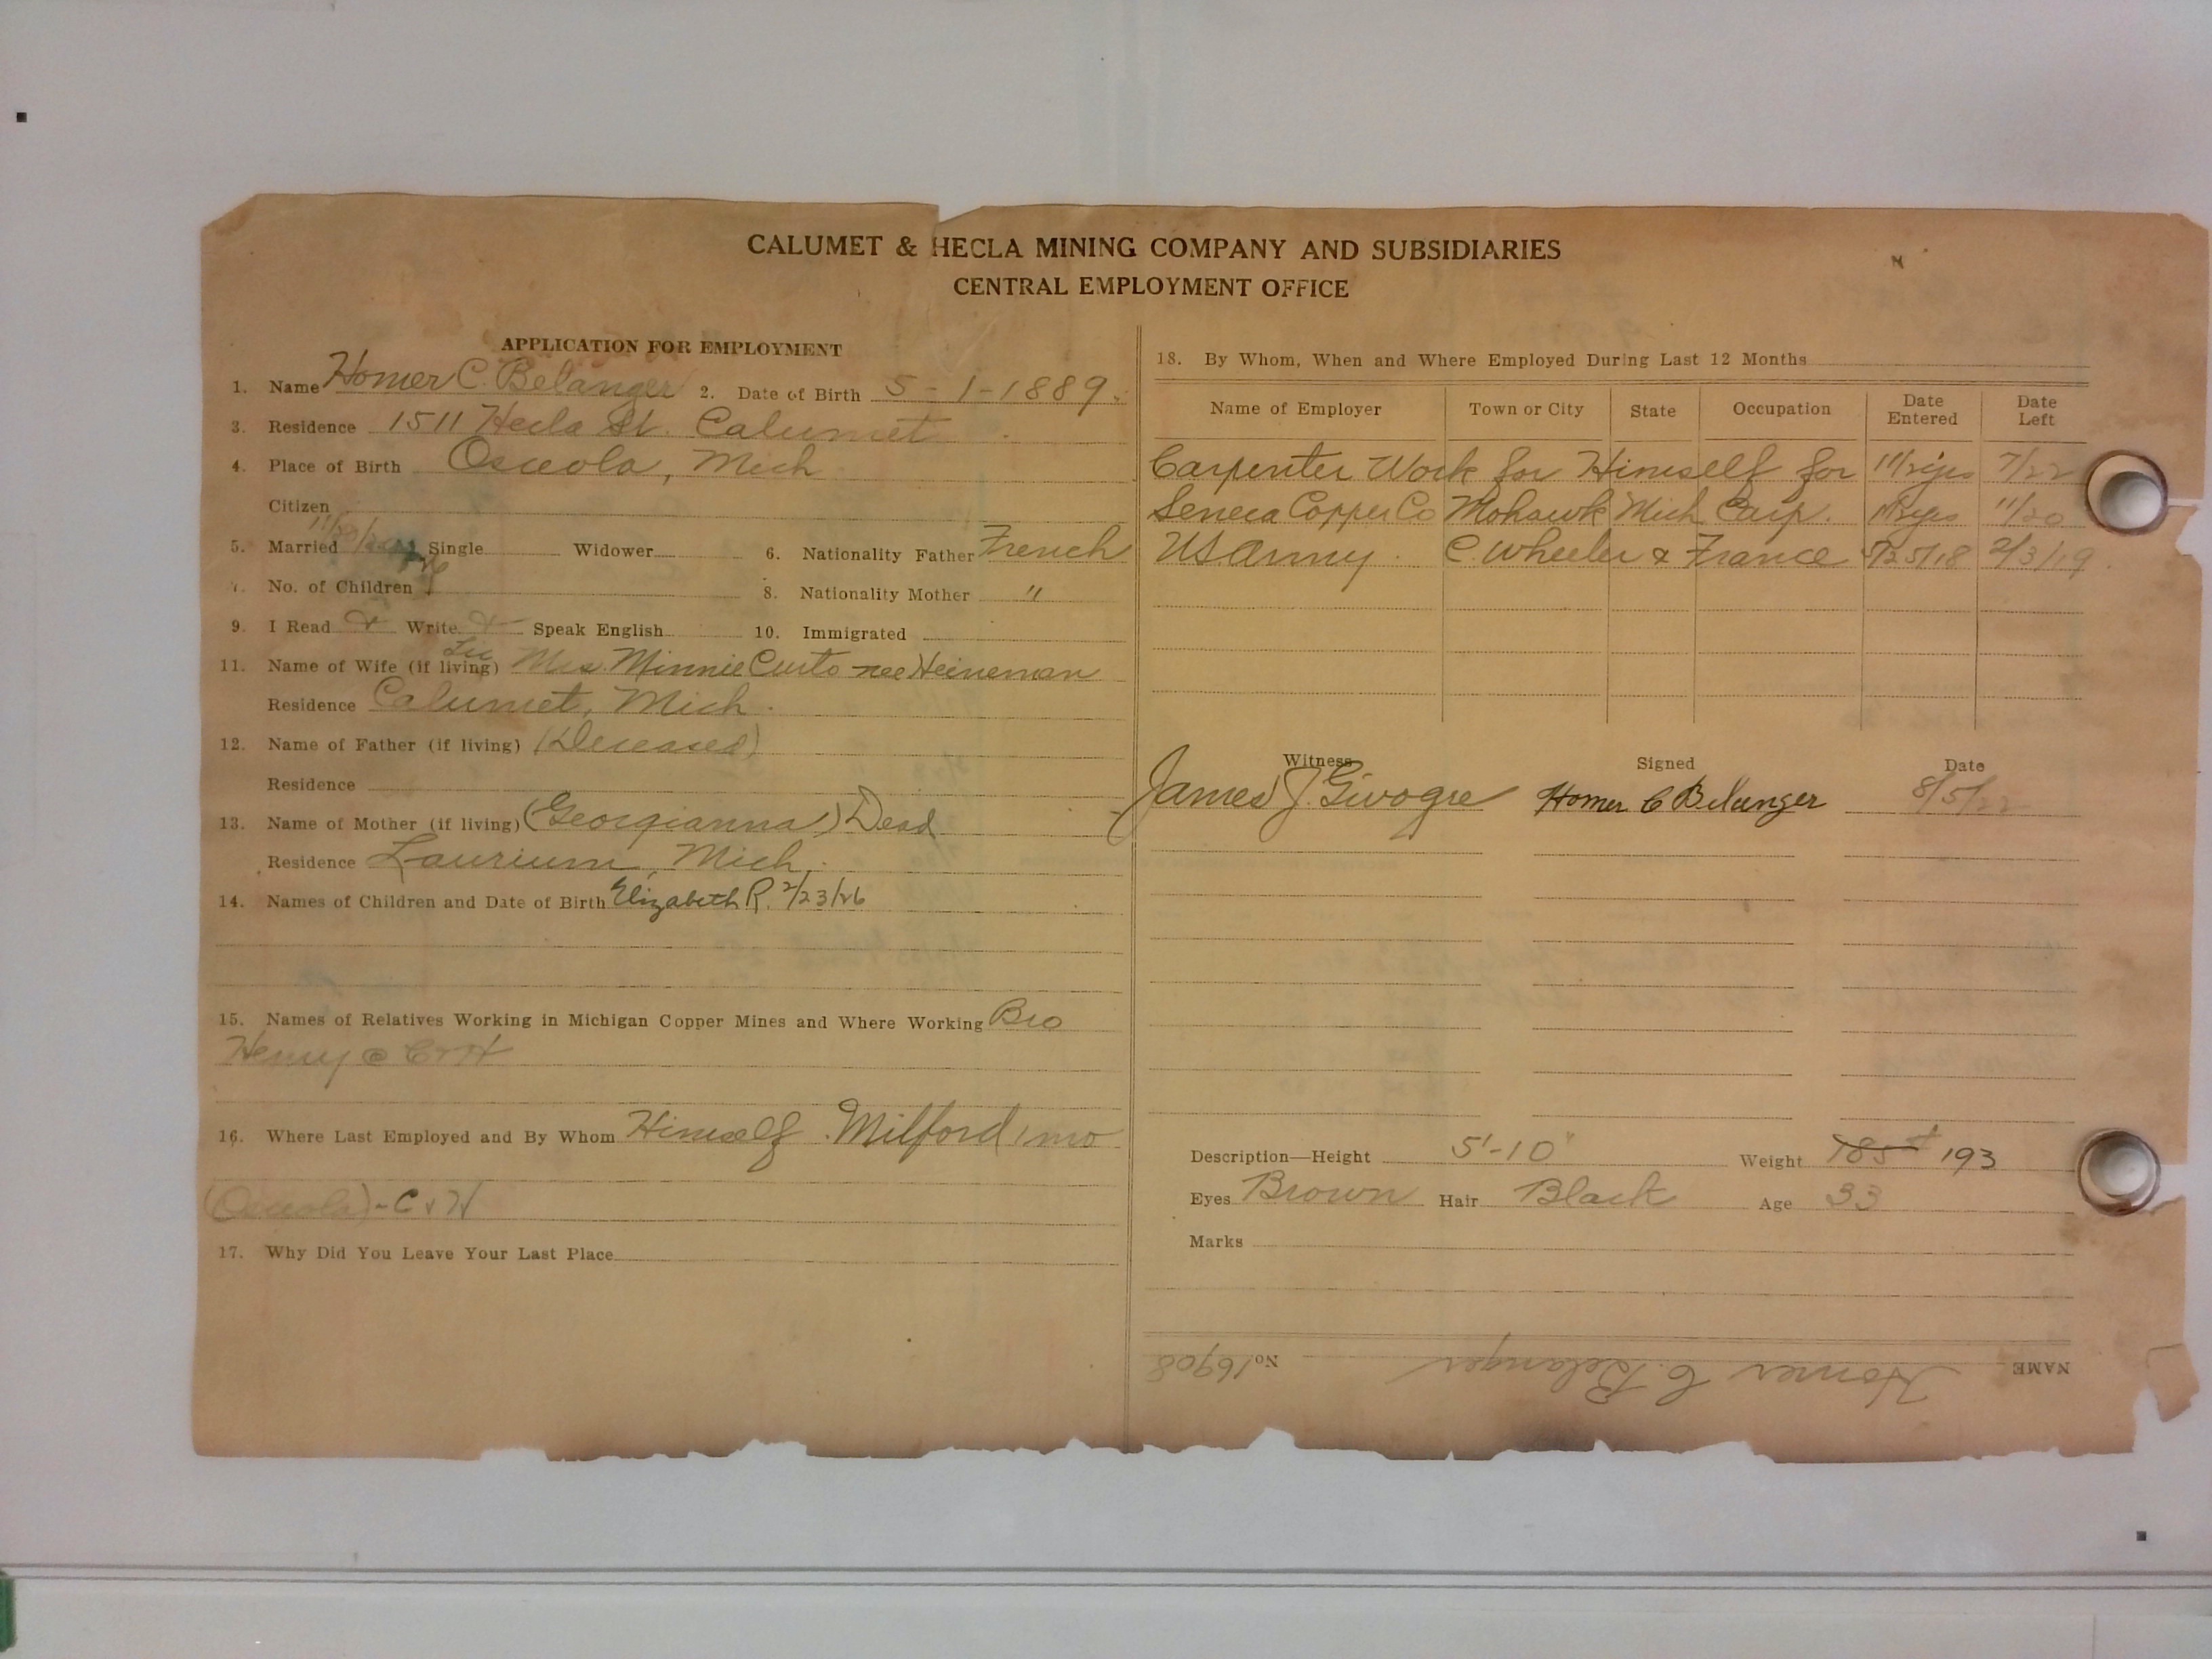 CALUMET & HECLA MINING COMPANY AND SUBSIDIARIES
CENTRAL EMPLOYMENT OFFICE
APPLICATION FOR EMPLOYMENT
1. Name Homer C. Belanger 2. Date of Birth 5-1-1889.
3. Residence 1511 Hecla St. Calumet
4. Place of Birth Osceola, Mich
Citizen
5. Married Single Widower 6. Nationality Father French
7. No. of Children 8. Nationality Mother "
9. I Read Write Speak English 10. Immigrated
11. Name of Wife (if living) Mrs. Minnie Curto nee Heineman
Residence Calumet, Mich.
12. Name of Father (if living) (Deceased)
Residence
13. Name of Mother (if living) (Georgianna) Dead
Residence Laurium, Mich.
14. Names of Children and Date of Birth Elizabeth R. 2/23/26
15. Names of Relatives Working in Michigan Copper Mines and Where Working Bro
Henry @ C&H
16. Where Last Employed and By Whom Himself Milford 1 mo
(Osceola)-C&H
17. Why Did You Leave Your Last Place
18. By Whom, When and Where Employed During Last 12 Months
Name of Employer Town or City State Occupation Date Entered Date Left
Carpenter Work for Himself for 1 1/2 yrs 7/22
Seneca Copper Co Mohawk Mich Carp. 11/20
US Army. C. Wheeler & France 5/25/18 2/3/19
Witness Signed Date
James J. Givogre Homer C Belanger 8/5/22
Description—Height 5'-10" Weight 185 193
Eyes Brown Hair Black Age 33
Marks
NAME Homer C. Belanger No. 16908